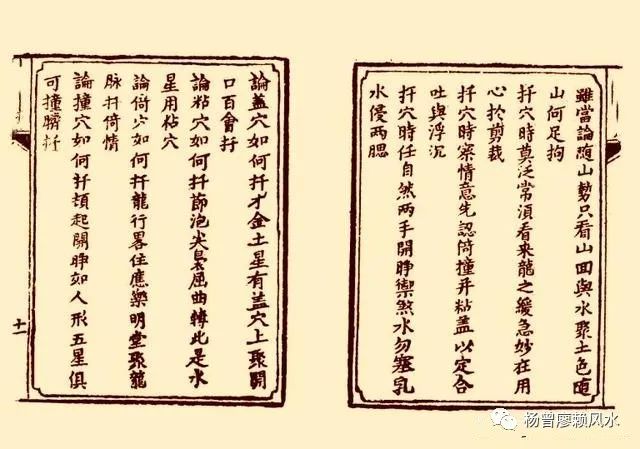 雖當論随山勢只看山回與水聚土色随
山何足拘
扦穴時莫泛常須看来龍之緩急妙在用
心於剪裁
扦穴時察情意先認倚撞并粘盖以定合
吐與浮沉
扦穴時任自然两手開睁禦煞水勿塞乳
水優两腮
論盖穴如何扦才金土星有盖穴上聚開
口百會扦
論粘穴如何扦節泡尖屈曲轉此是水
星用粘穴
論倚穴如何扦龍行畧住應樂明堂聚龍
脉扦倚情
論撞穴如何扦頭起開睁如人形五星俱
可撞臍扦
十一
杨曾廖赖风水